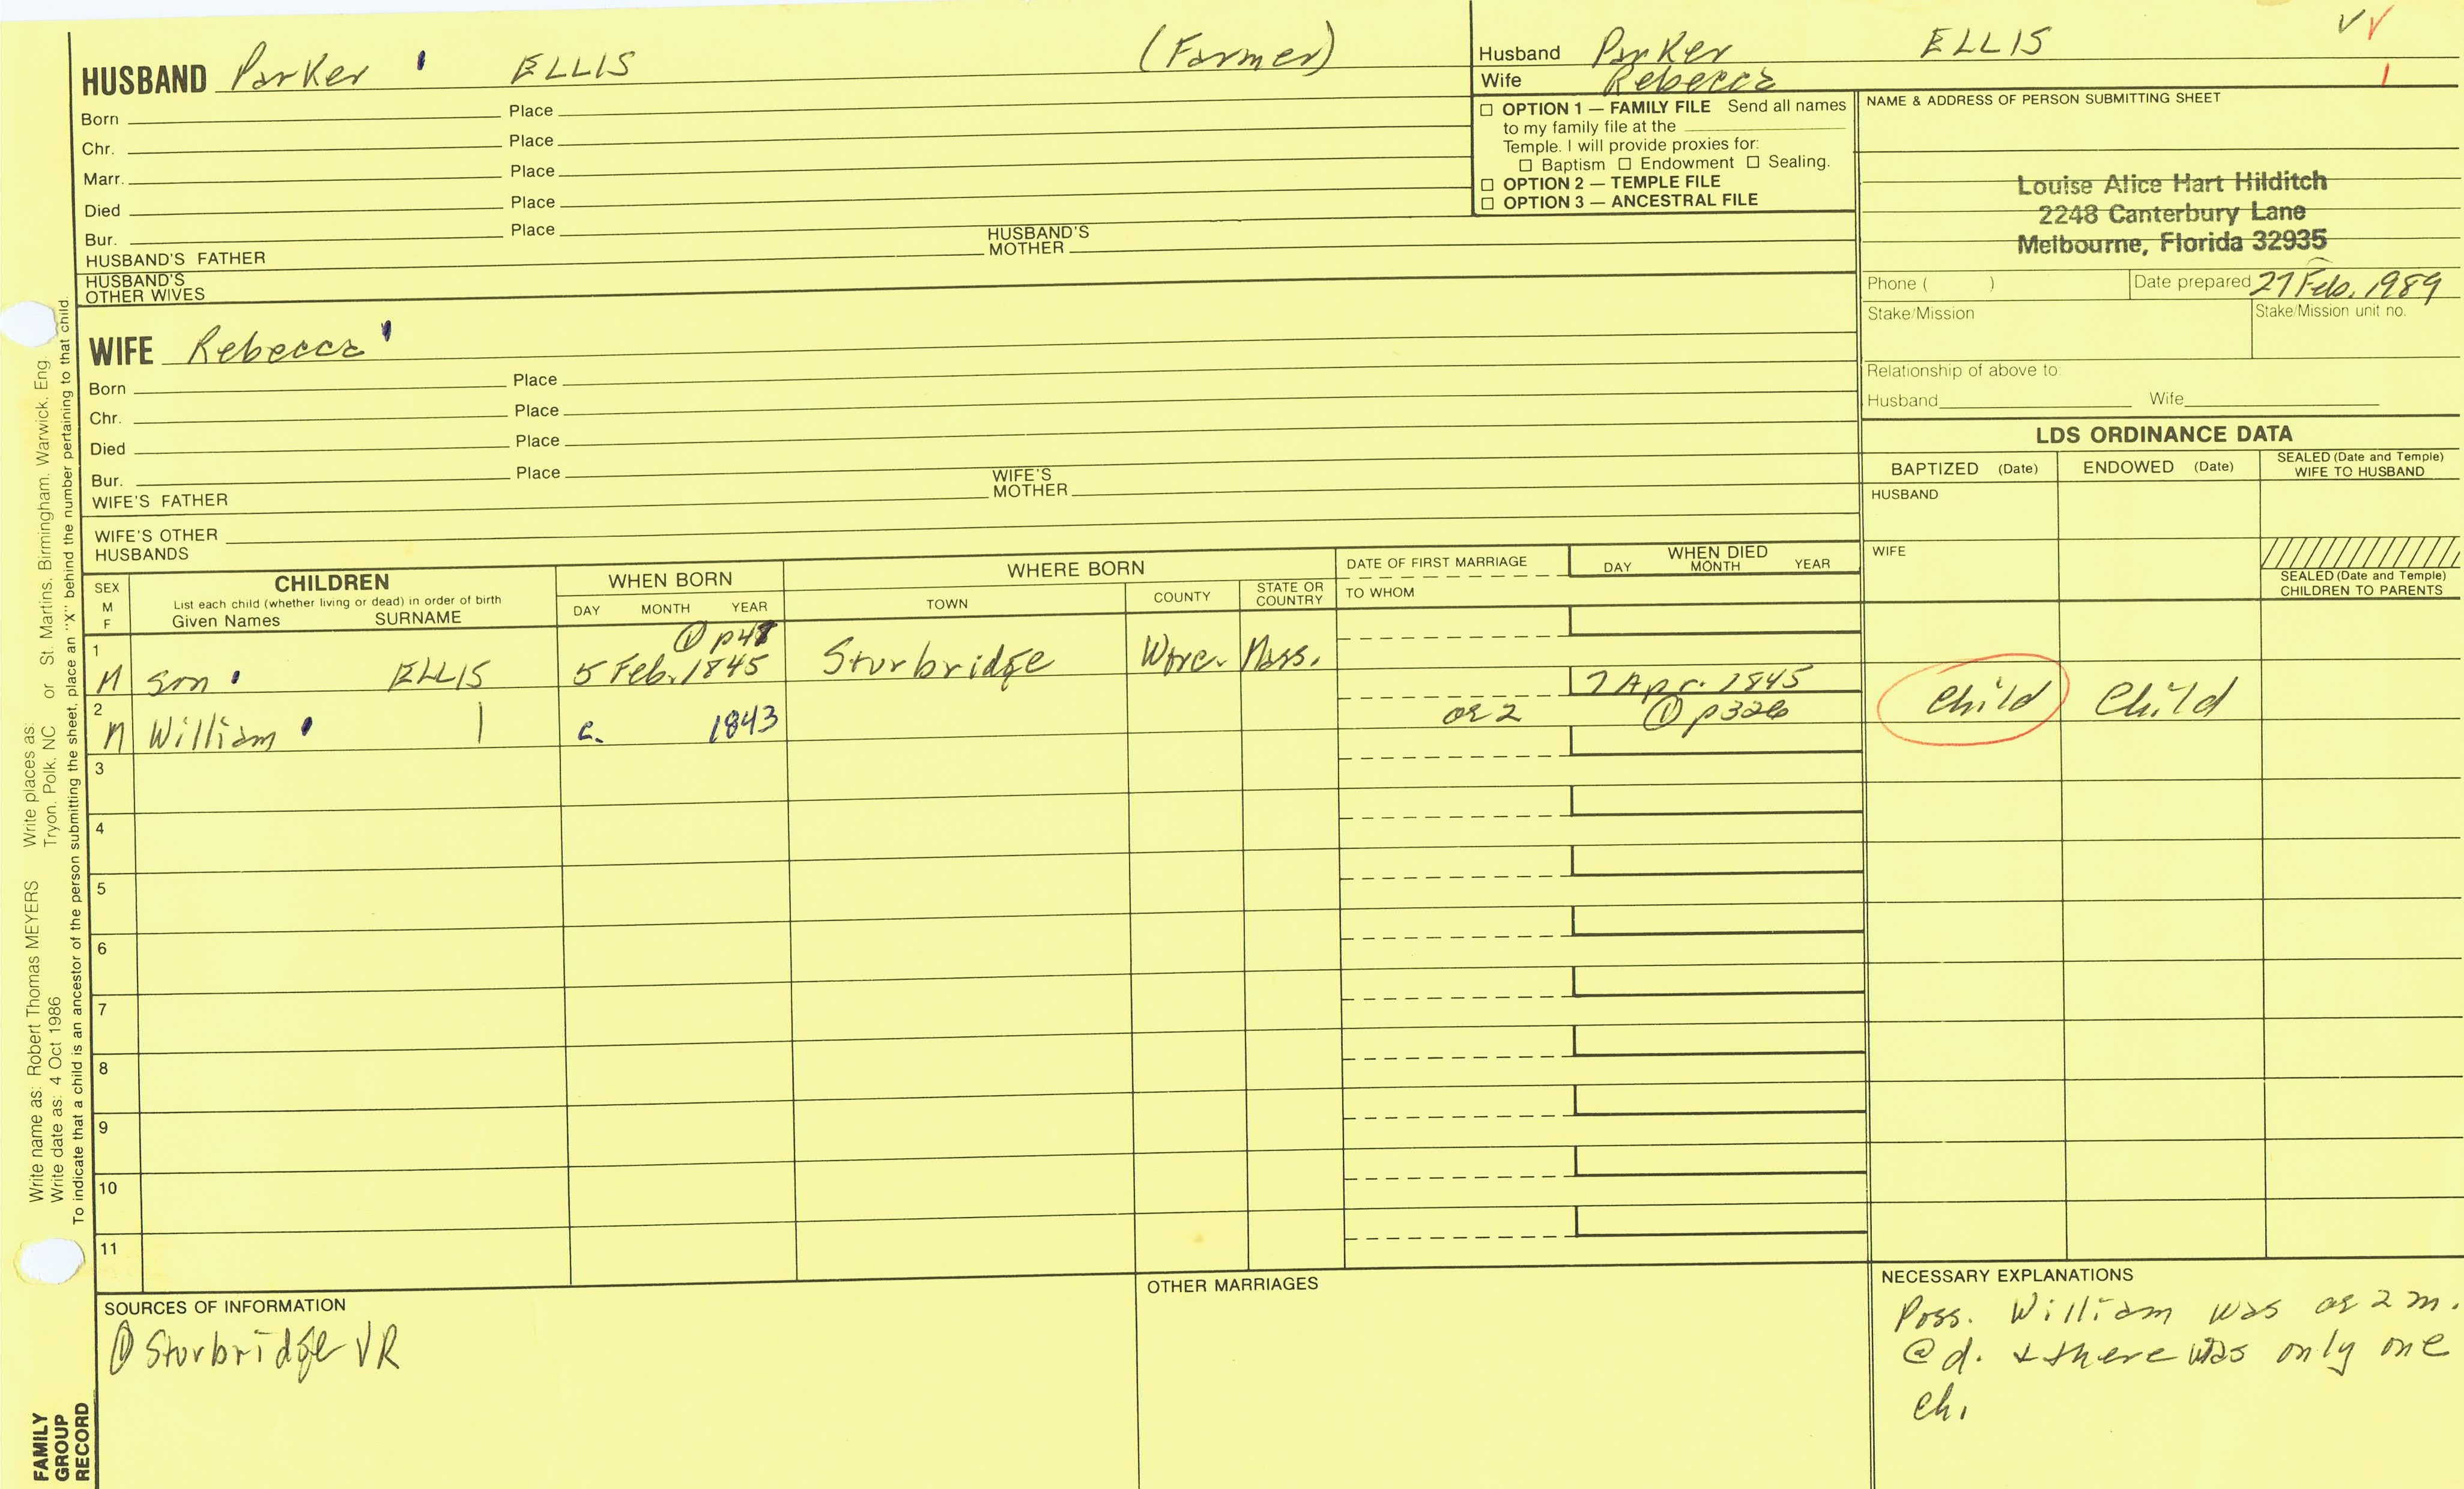 HUSBAND Parker ELLIS (Farmer)
Born Place
Chr. Place
Marr. Place
Died Place
Bur. Place
HUSBAND'S FATHER HUSBAND'S MOTHER
HUSBAND'S OTHER WIVES
WIFE Rebecca
Born Place
Chr. Place
Died Place
Bur. Place
WIFE'S FATHER WIFE'S MOTHER
WIFE'S OTHER HUSBANDS
Husband Parker ELLIS
Wife Rebecca
☐ OPTION 1 — FAMILY FILE Send all names
to my family file at the
Temple. I will provide proxies for:
☐ Baptism ☐ Endowment ☐ Sealing.
☐ OPTION 2 — TEMPLE FILE
☐ OPTION 3 — ANCESTRAL FILE
NAME & ADDRESS OF PERSON SUBMITTING SHEET
Louise Alice Hart Hilditch
2248 Canterbury Lane
Melbourne, Florida 32935
Phone ( ) Date prepared 27 Feb. 1989
Stake/Mission Stake/Mission unit no.
Relationship of above to:
Husband Wife
LDS ORDINANCE DATA
BAPTIZED (Date) ENDOWED (Date) SEALED (Date and Temple) WIFE TO HUSBAND
HUSBAND
WIFE
SEALED (Date and Temple) CHILDREN TO PARENTS
SEX M F
CHILDREN
List each child (whether living or dead) in order of birth
Given Names SURNAME
WHEN BORN
DAY MONTH YEAR
WHERE BORN
TOWN COUNTY STATE OR COUNTRY
DATE OF FIRST MARRIAGE
TO WHOM
WHEN DIED
DAY MONTH YEAR
① p48
1 M son ELLIS 5 Feb. 1845 Sturbridge Worc. Mass. 7 Apr. 1845 Child Child
2 M William | c. 1843 ae 2 ① p326
3
4
5
6
7
8
9
10
11
SOURCES OF INFORMATION
① Sturbridge VR
OTHER MARRIAGES
NECESSARY EXPLANATIONS
Poss. William was ae 2 m.
@ d. + there was only one
ch.
Write name as: Robert Thomas MEYERS Write places as:
Write date as: 4 Oct 1986 Tryon, Polk, NC or St. Martins, Birmingham, Warwick, Eng.
To indicate that a child is an ancestor of the person submitting the sheet, place an "X" behind the number pertaining to that child.
FAMILY
GROUP
RECORD